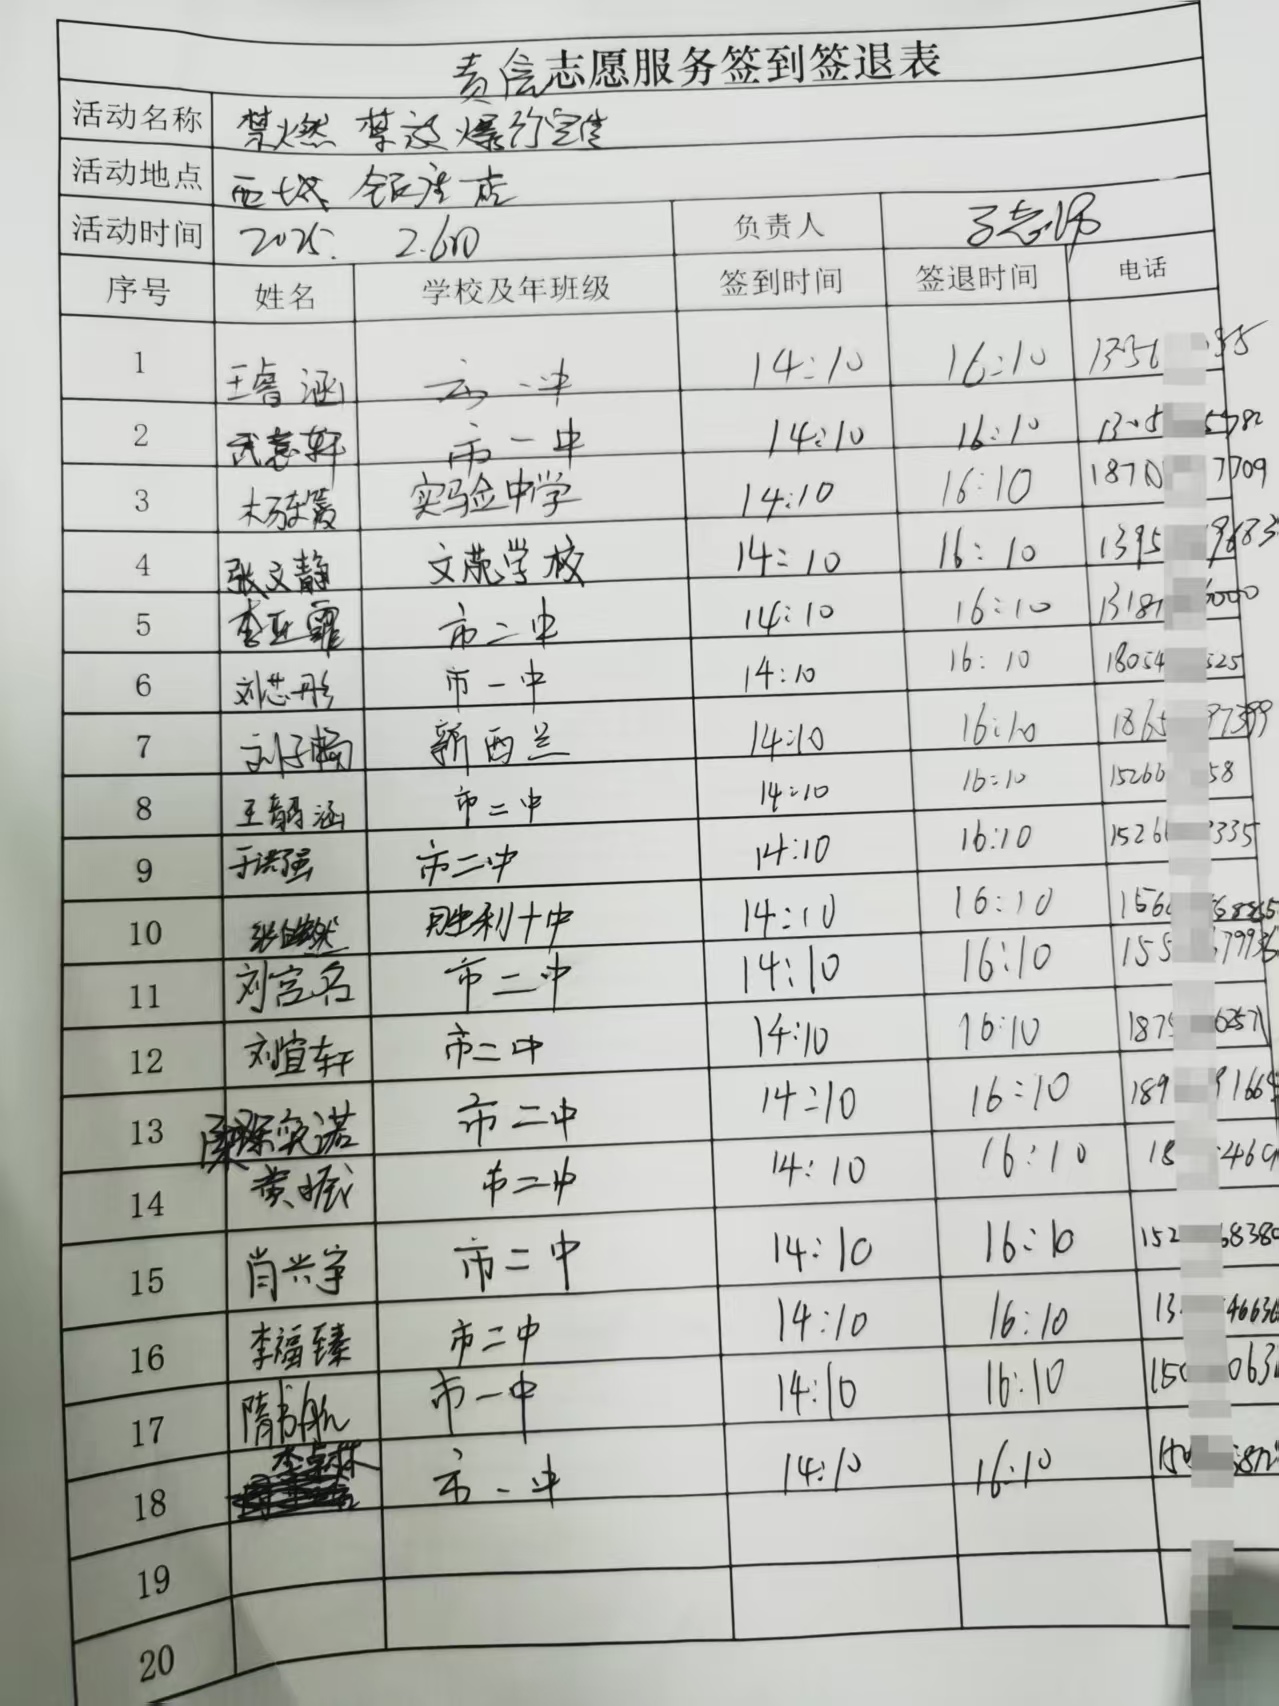 责信志愿服务签到签退表
活动名称 禁燃 禁放 爆竹宣传
活动地点 西城 银座店
活动时间 2025. 2.6日 负责人
序号 姓名 学校及年班级 签到时间 签退时间 电话
1 王睿涵 市一中 14:10 16:10 1336 335
2 武意轩 市一中 14:10 16:10 1305 5782
3 实验中学 14:10 16:10 1870 7709
4 张文静 文苑学校 14:10 16:10 1395 9683
5 李亚霏 市二中 14:10 16:10 1318 6000
6 刘芯彤 市一中 14:10 16:10 18054 525
7 刘子楠 新西兰 14:10 16:10 1865 97399
8 王韵涵 市二中 14:10 16:10 15266 58
9 于洪强 市二中 14:10 16:10 1526 3335
10 胜利十中 14:10 16:10 1560 58885
11 刘宫名 市二中 14:10 16:10 155 79936
12 刘宜轩 市二中 14:10 16:10 1875 62571
13 陈奕诺 市二中 14:10 16:10 189 9166
14 黄振 市二中 14:10 16:10 18 460
15 肖兴宇 市二中 14:10 16:10 152 68380
16 李福臻 市二中 14:10 16:10 13 46636
17 隋书航 市一中 14:10 16:10 150 063
18 李卓林 市一中 14:10 16:10 150 587
19
20